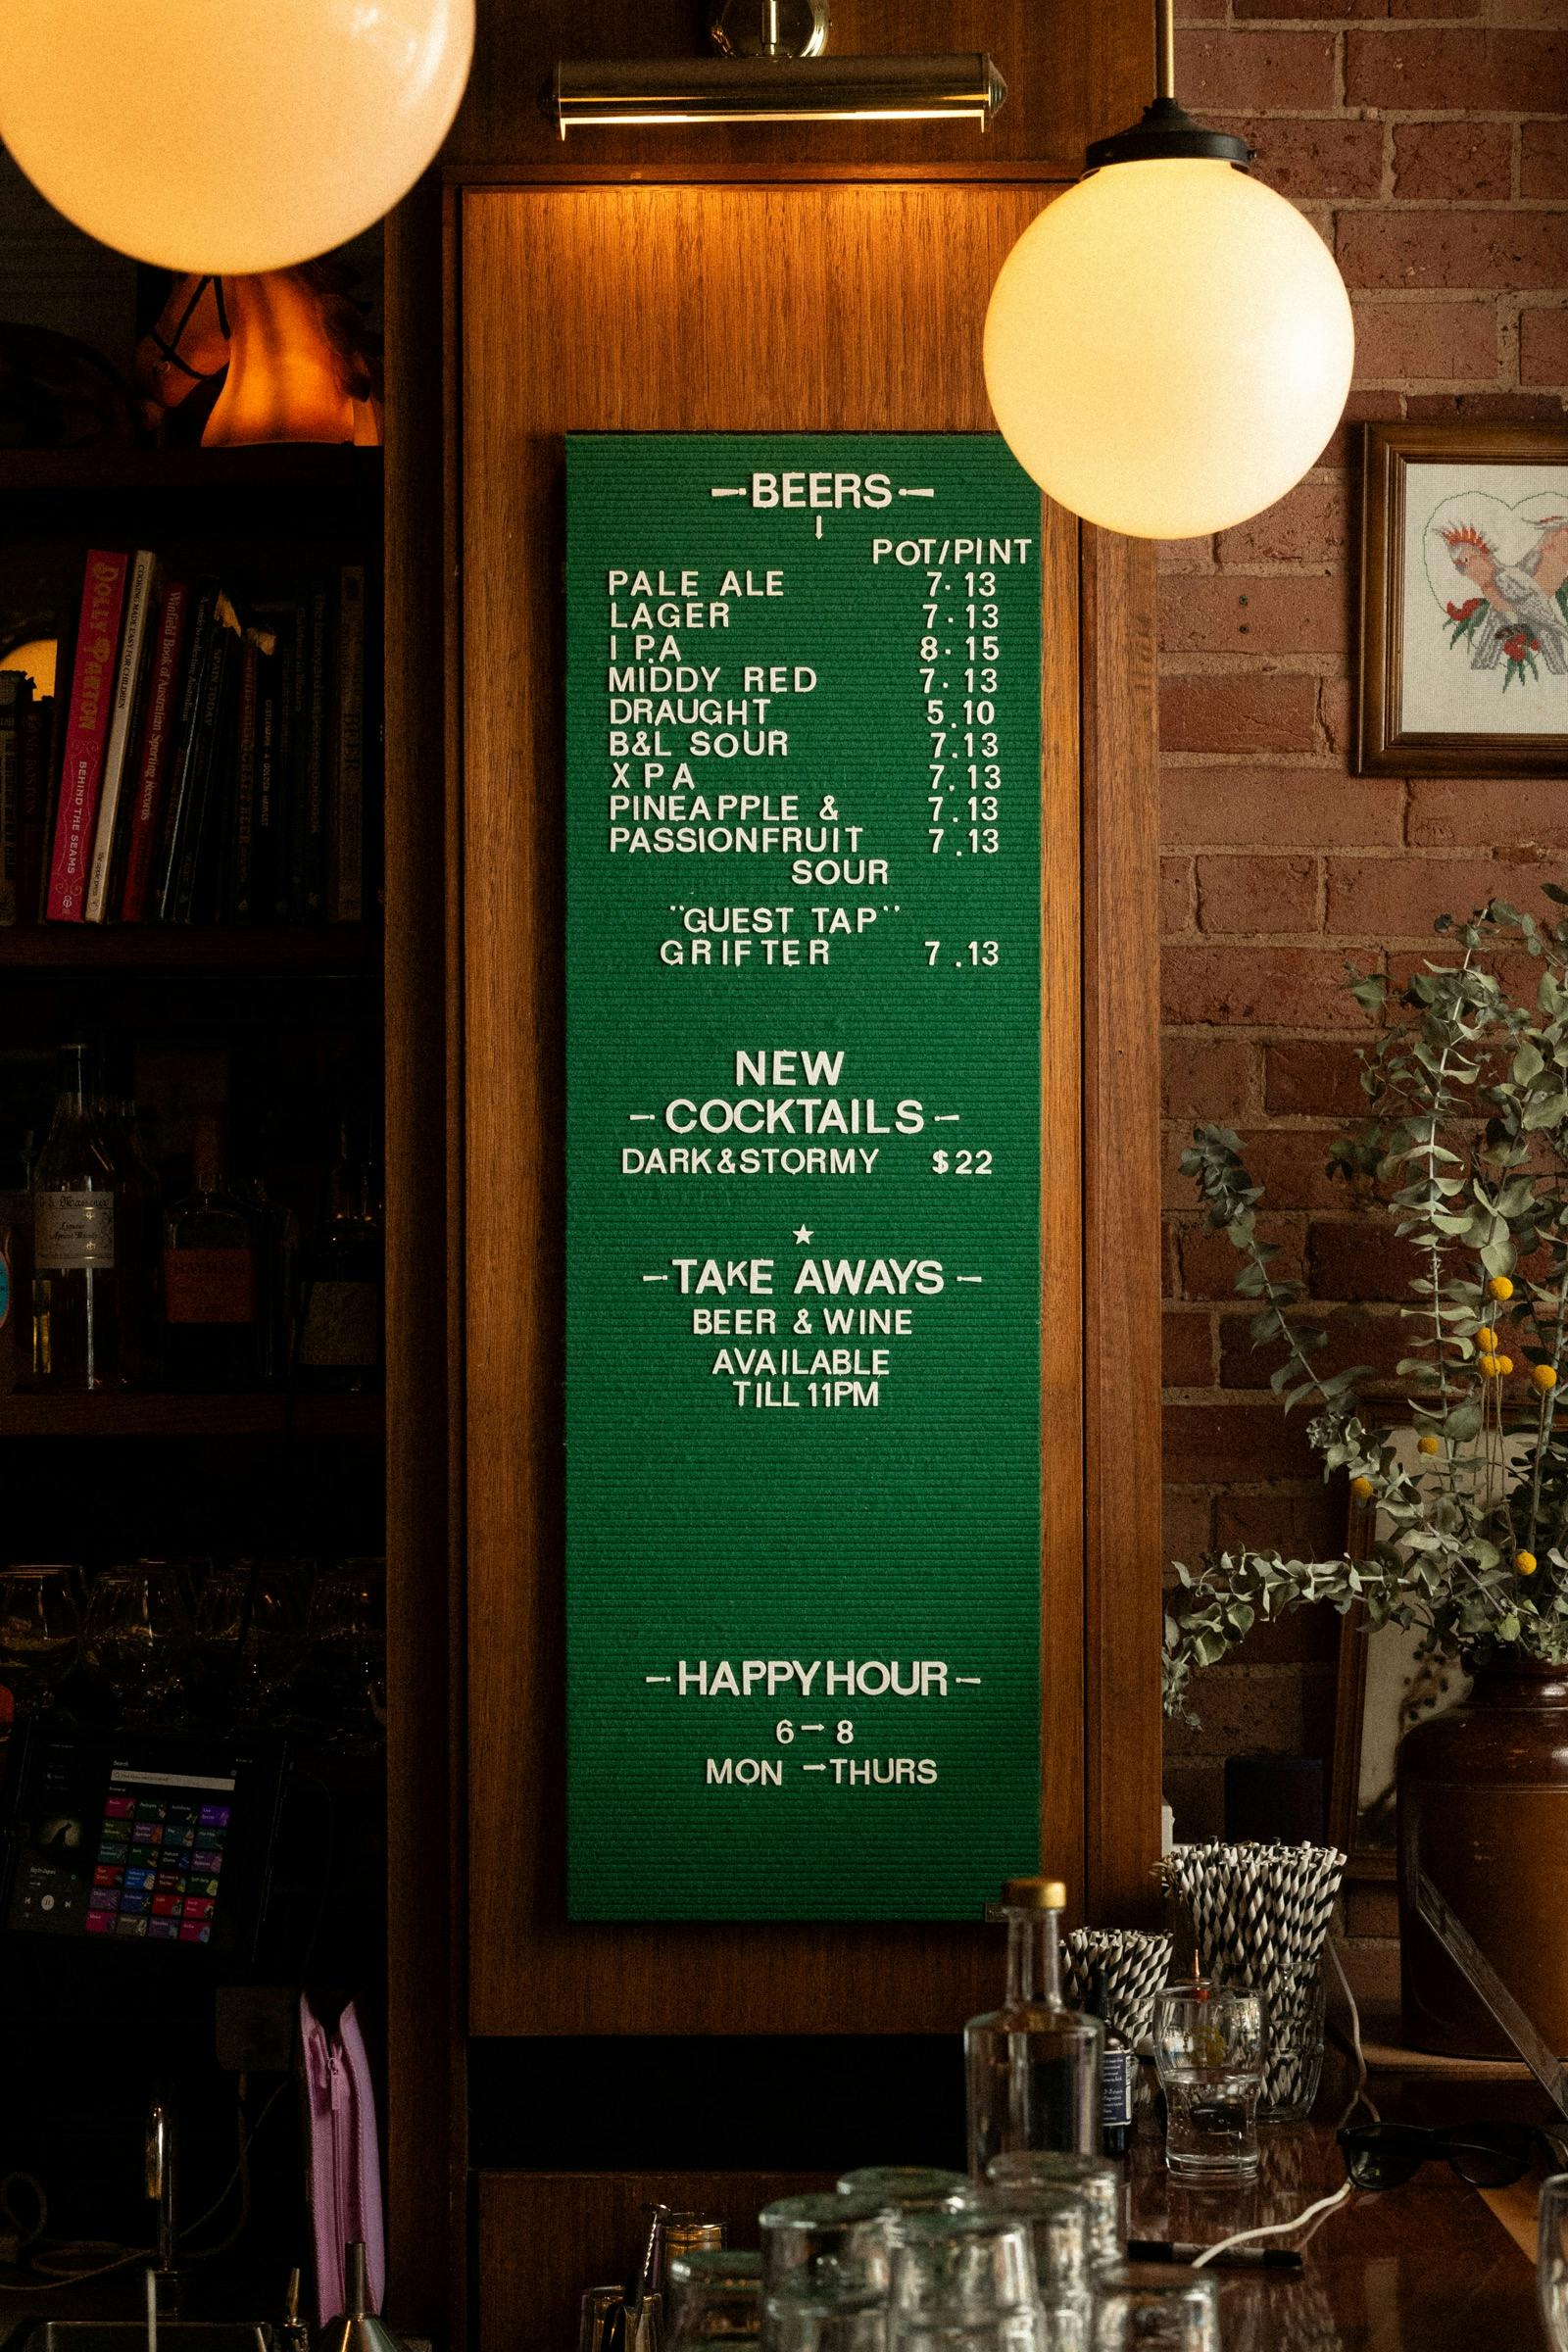 BEERS
POT/PINT
PALE ALE 7·13
LAGER 7·13
IPA 8·15
MIDDY RED 7·13
DRAUGHT 5.10
B&L SOUR 7.13
XPA 7.13
PINEAPPLE & 7.13
PASSIONFRUIT 7.13
SOUR
"GUEST TAP"
GRIFTER 7.13
NEW
-COCKTAILS-
DARK&STORMY $22
★
-TAKE AWAYS-
BEER & WINE
AVAILABLE
TILL 11PM
-HAPPY HOUR-
6-8
MON -THURS
DOLLY PARTON
BEHIND THE SEAMS
COOKING MADE EASY FOR CHILDREN
Winfield Book of Australian Sporting Records